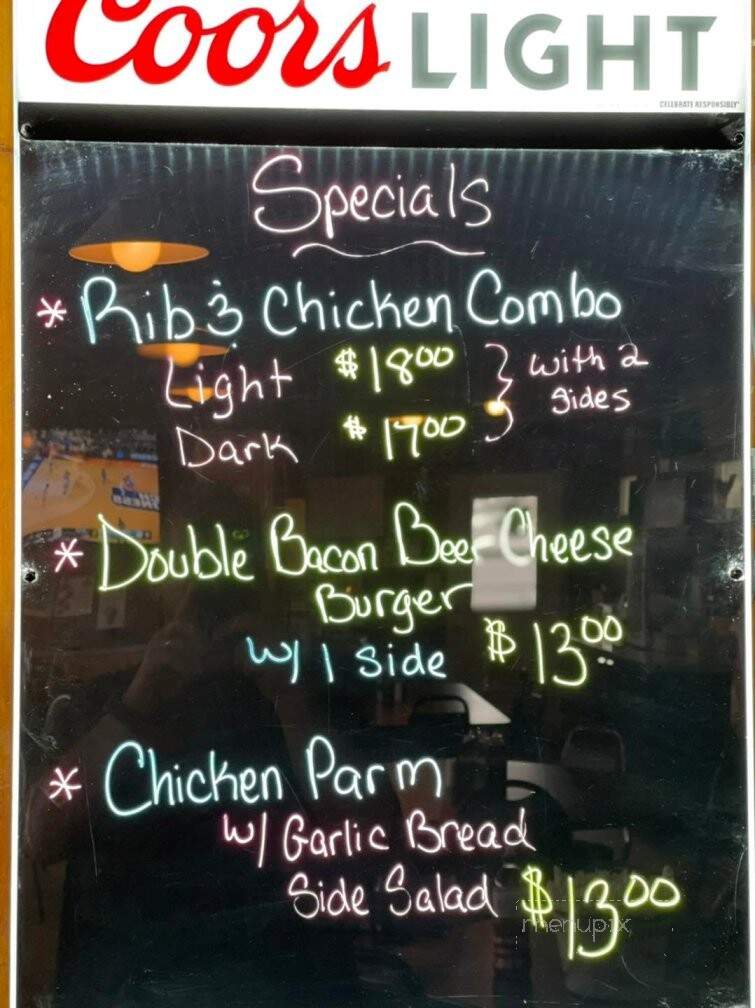 Coors LIGHT
CELEBRATE RESPONSIBLY
Specials
* Rib & Chicken Combo
Light $18.00 } with 2
Dark $17.00 sides
* Double Bacon Beer Cheese
Burger
w/ 1 side $13.00
* Chicken Parm
w/ Garlic Bread
Side Salad $13.00
menupix